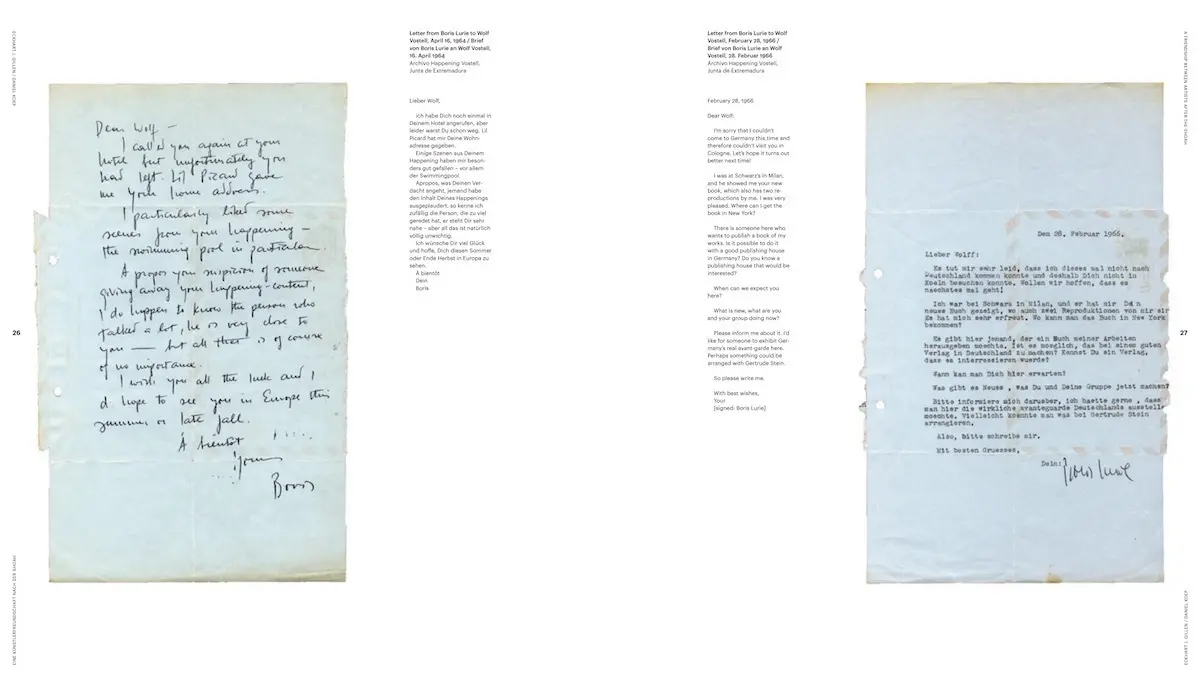 ECKHART J. GILLEN / DANIEL KOEP
26
EINE KÜNSTLERFREUNDSCHAFT NACH DER SHOAH
Dear Wolf –
I called you again at your
hotel but unfortunately you
had left. Lil Picard gave
me your home address.
I particularly liked some
scenes from your happening –
the swimming pool in particular.
A propos your suspicion of someone
giving away your happening-content,
I do happen to know the person who
talked a lot, he is very close to
you — but all that is of course
of no importance.
I wish you all the luck and I
d hope to see you in Europe this
summer or late fall.
À bientôt
Yours
Boris
Letter from Boris Lurie to Wolf
Vostell, April 16, 1964 / Brief
von Boris Lurie an Wolf Vostell,
16. April 1964
Archivo Happening Vostell,
Junta de Extremadura
Lieber Wolf,
ich habe Dich noch einmal in
Deinem Hotel angerufen, aber
leider warst Du schon weg. Lil
Picard hat mir Deine Wohn-
adresse gegeben.
Einige Szenen aus Deinem
Happening haben mir beson-
ders gut gefallen – vor allem
der Swimmingpool.
Apropos, was Deinen Ver-
dacht angeht, jemand habe
den Inhalt Deines Happenings
ausgeplaudert, so kenne ich
zufällig die Person, die zu viel
geredet hat, er steht Dir sehr
nahe – aber all das ist natürlich
völlig unwichtig.
Ich wünsche Dir viel Glück
und hoffe, Dich diesen Sommer
oder Ende Herbst in Europa zu
sehen.
À bientôt
Dein
Boris
Letter from Boris Lurie to Wolf
Vostell, February 28, 1966 /
Brief von Boris Lurie an Wolf
Vostell, 28. Februar 1966
Archivo Happening Vostell,
Junta de Extremadura
February 28, 1966
Dear Wolf:
I'm sorry that I couldn't
come to Germany this time and
therefore couldn't visit you in
Cologne. Let's hope it turns out
better next time!
I was at Schwarz's in Milan,
and he showed me your new
book, which also has two re-
productions by me. I was very
pleased. Where can I get the
book in New York?
There is someone here who
wants to publish a book of my
works. Is it possible to do it
with a good publishing house
in Germany? Do you know a
publishing house that would be
interested?
When can we expect you
here?
What is new, what are you
and your group doing now?
Please inform me about it. I'd
like for someone to exhibit Ger-
many's real avant-garde here.
Perhaps something could be
arranged with Gertrude Stein.
So please write me.
With best wishes,
Your
[signed: Boris Lurie]
Den 28. Februar 1966.
Lieber Wolff:
Es tut mir sehr leid, dass ich dieses mal nicht nach
Deutschland kommen konnte und deshalb Dich nicht in
Koeln besuchen konnte. Wollen wir hoffen, dass es
naechstes mal geht!
Ich war bei Schwarz in Milan, und er hat mir Dein
neues Buch gezeigt, wo auch zwei Reproduktionen von mir
Es hat mich sehr erfreut. Wo kann man das Buch in New York
bekommen?
Es gibt hier jemand, der ein Buch meiner Arbeiten
herausgeben moechte. Ist es moeglich, das bei einem guten
Verlag in Deutschland zu machen? Kennst Du ein Verlag,
dass es interressieren wuerde?
Wann kann man Dich hier erwarten?
Was gibt es Neues, was Du und Deine Gruppe jetzt machen?
Bitte informiere mich darueber, ich haette gerne, dass
man hier die wirkliche avanteguarde Deutschlands
moechte. Vielleicht koennte man was bei Gertrude Stein
arrangieren.
Also, bitte schreibe mir.
Mit besten Gruessen,
Dein: Boris Lurie
A FRIENDSHIP BETWEEN ARTISTS AFTER THE SHOAH
27
ECKHART J. GILLEN / DANIEL KOEP